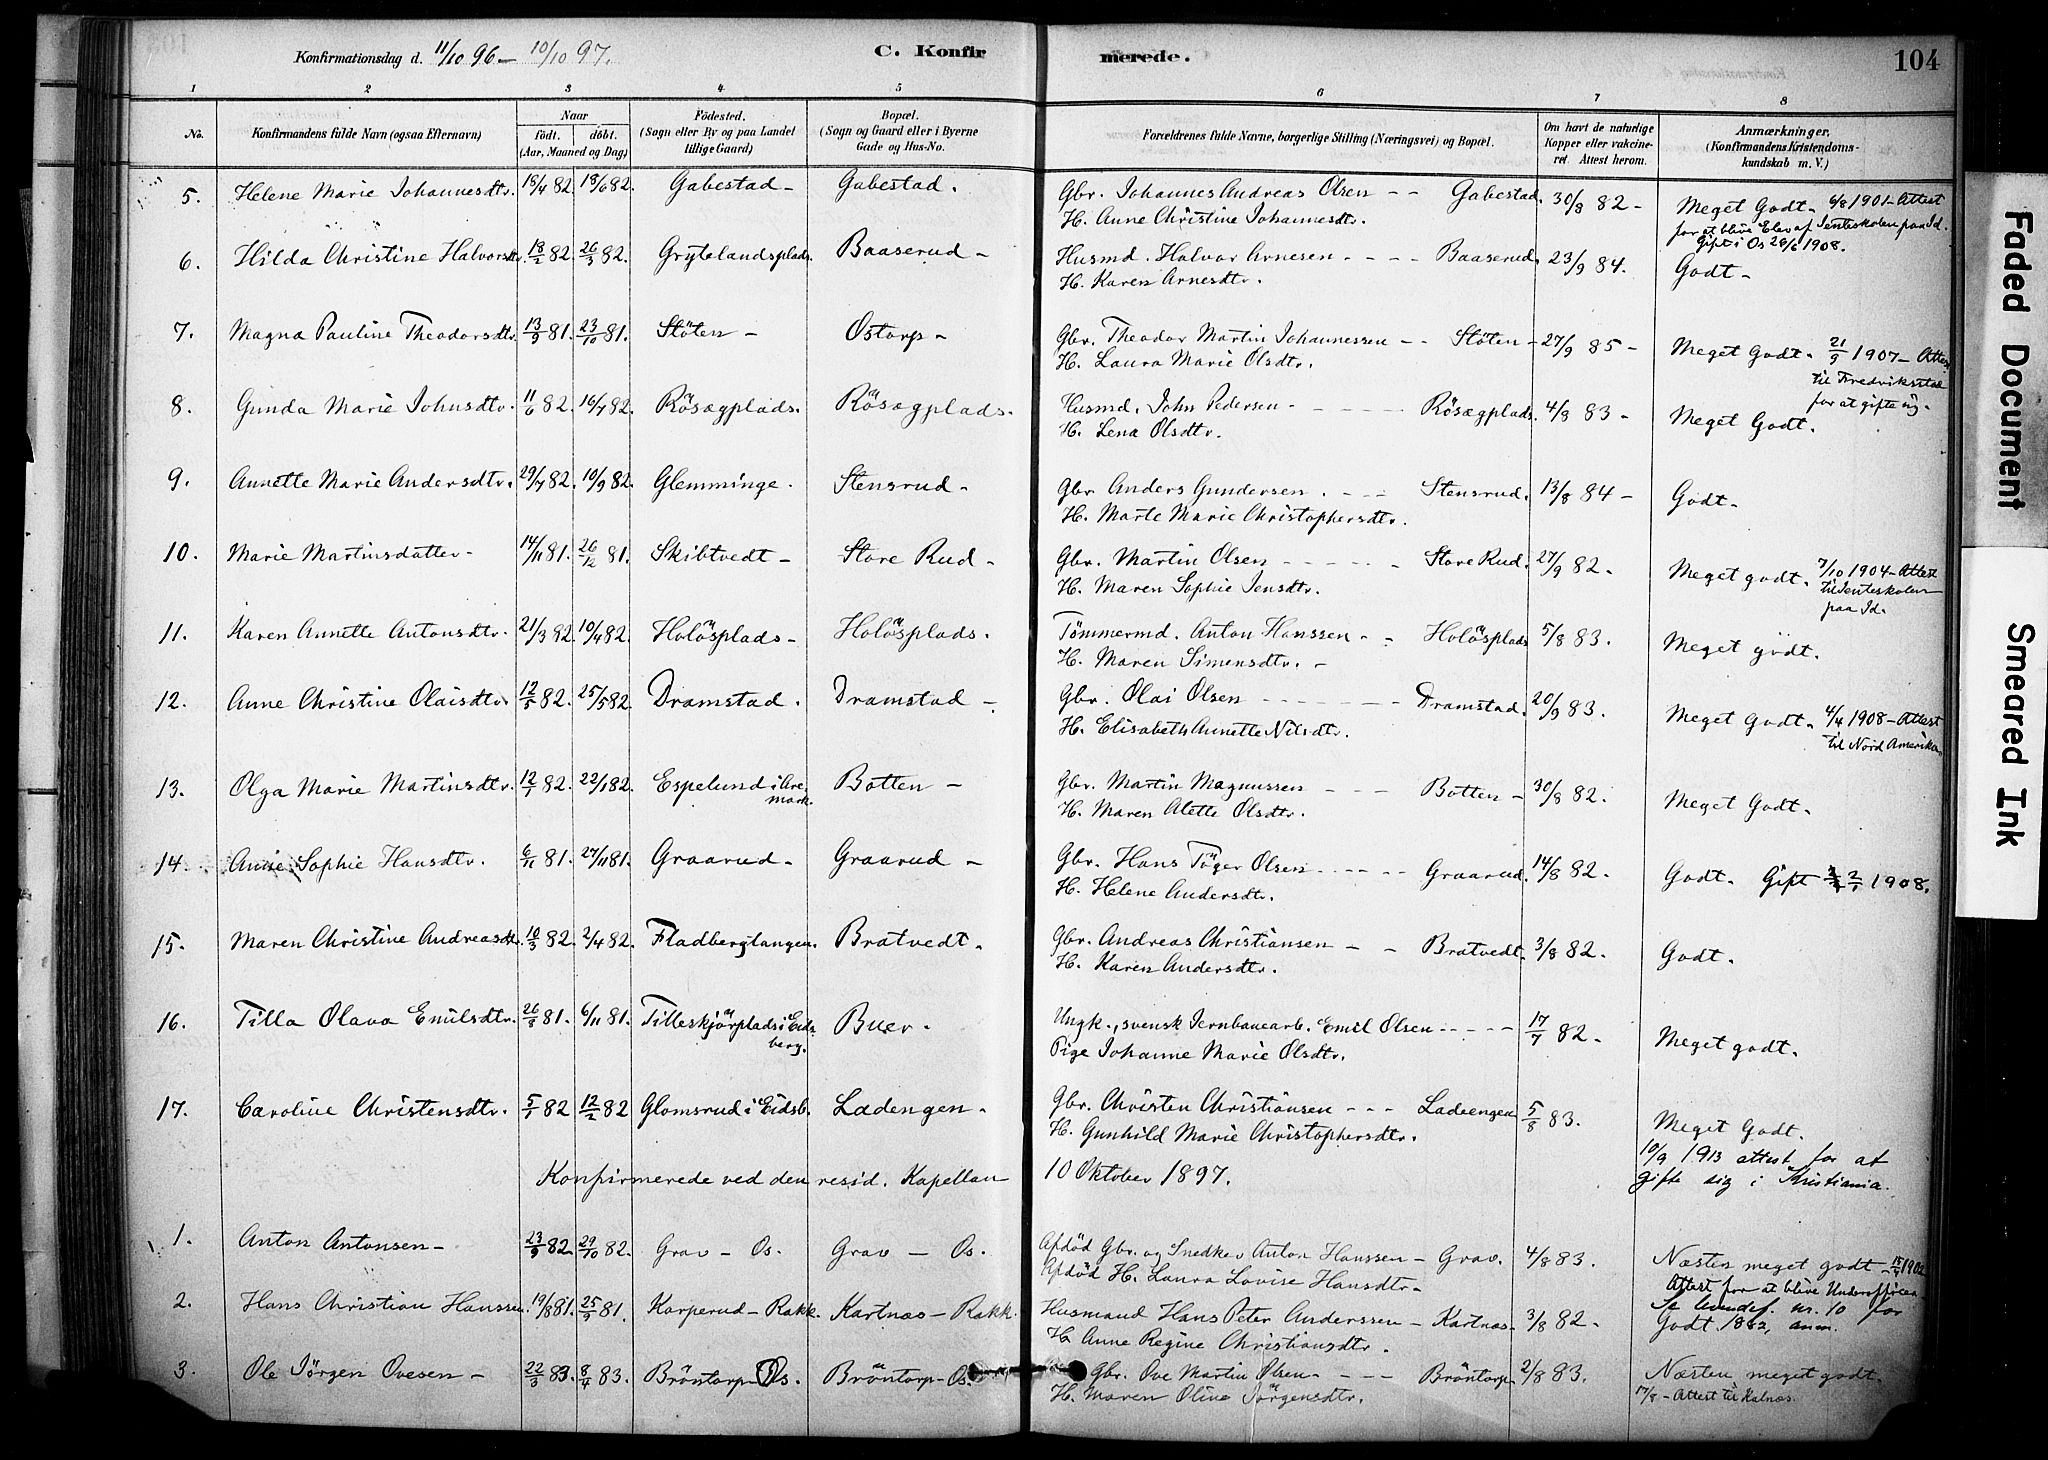 Konfirmationsdag d. 11/10 96 – 10/10 97. C. Konfirmerede. 104
1 2 3 4 5 6 7 8
No. Konfirmandens fulde Navn (ogsaa Efternavn) Naar født. døbt. (Aar, Maaned og Dag) Fødested. (Sogn eller By og paa Landet tillige Gaard) Bopæl. (Sogn og Gaard eller i Byerne Gade og Hus-No. Forældrenes fulde Navne, borgerlige Stilling (Næringsvei) og Bopæl. Om havt de naturlige Kopper eller vakcineret. Attest herom. Anmærkninger. (Konfirmandens Kristendomskundskab m. V.)
5. Helene Marie Johannesdtr. 18/4 82. 18/6 82. Gabestad – Gabestad. Gbr. Johannes Andreas Olsen – – Gabestad. 30/8 82 – Meget Godt. 6/8 1901 – Attest
H. Anne Christine Johannesdtr. for at blive Elev af Jenteskolen paa Id.
Gift i Os 26/6 1908.
6. Hilda Christine Halvorsdtr. 18/2 82. 26/3 82. Grytelandsplads. Baaserud – Husmd. Halvor Arnesen – – – – Baaserud. 23/9 84. Godt –
H. Karen Arnesdtr.
7. Magna Pauline Theodorsdtr. 13/9 81. 23/10 81. Stöten – Ostorp – Gbr. Theodor Martin Johannessen – – Stöten – 27/9 85 – Meget Godt. 21/9 1907 – Attest
H. Laura Marie Olsdtr. til Fredriksstad
for at gifte sig.
8. Gunda Marie Johnsdtr. 11/6 82. 16/7 82. Rösægplads. Rösægplads. Husmd. John Pedersen – – – – – Rösægplads. 4/8 83 – Meget Godt.
H. Lena Olsdtr.
9. Annette Marie Andersdtr. 29/7 82. 10/9 82. Glemminge. Stensrud – Gbr Anders Gundersen. – – – Stensrud. 13/8 84 – Godt.
H. Marte Marie Christophersdtr.
10. Marie Martinsdatter – 14/11 81. 26/12 81. Skibtvedt – Store Rud – Gbr. Martin Olsen – – – – – Store Rud. 27/9 82. Meget godt. 7/10 1904 – Attest
H. Maren Sophie Jensdtr. til Jenteskolen
paa Id.
11. Karen Annette Antonsdtr. 21/3 82. 10/4 82. Holösplads – Holösplads. Tömmermd. Anton Hanssen – – Holösplads 5/8 83. Meget godt.
H. Maren Simensdtr. –
12. Anne Christine Olaisdtr. 12/5 82. 25/5 82. Dramstad. Dramstad – Gbr. Olai Olsen – – – – – – Dramstad. 20/9 83. Meget Godt. 4/4 1908 – Attest
H. Elisabeth Annette Nilsdtr. til Nord Amerika.
13. Olga Marie Martinsdtr. 12/1 82. 22/1 82. Espelund i Aremark. Botten – Gbr. Martin Magnussen – – – Botten – 30/8 82. Meget Godt.
H. Maren Alette Olsdtr.
14. Anne Sophie Hansdtr. 6/11 81. 27/11 81. Graarud – Graarud – Gbr. Hans Töger Olsen – – – – Graarud. 14/8 82. Godt. Gift 2/1 1908.
H. Helene Andersdtr.
15. Maren Christine Andreasdtr. 10/3 82. 2/4 82. Fladbergtangen. Bratvedt. Gbr. Andreas Christiansen – – Bratvedt. 3/8 82. Godt.
H. Karen Andersdtr.
16. Tilla Olava Emilsdtr. 26/8 81. 6/11 81. Tilleskjörplads i Eidsberg. Buer. Ungk., svensk Jernbanearb. Emil Olsen – – – – – 17/7 82 – Meget godt.
Pige Johanne Marie Olsdtr.
17. Caroline Christensdtr. 5/1 82 12/2 82 Glomsrud i Eidsb. Ladengen. Gbr. Christen Christiansen – – – Ladeengen 5/8 83. Meget Godt.
H. Gunhild Marie Christophersdtr. 10/9 1913 attest for at
gifte sig i Kristiania.
Konfirmerede ved den resid. Kapellan 10 Oktober 1897.
1. Anton Antonsen – 23/9 82. 29/10 82. Grav – Os. Grav – Os. Afdöd Gbr. og Snedker Anton Hanssen – Grav. 4/8 83. Næsten meget godt 1902
Afdöd H. Laura Lovise Hansdtr. Attest for at blive Underofficer
2. Hans Christian Hanssen. 19/8 81. 25/9 81. Karperud – Rakk. Kartnas – Rakk. Husmand Hans Peter Anderssen – Kartnas – 3/8 82. nr. 10 for
H. Anne Regine Christiansdtr. Godt 1882, anm.
3. Ole Jörgen Ovesen – 22/3 83. 8/4 83. Bröntorp – Os. Bröntorp – Os. Gbr. Ove Martin Olsen – – – – Bröntorp – 2/8 83. Næsten meget godt.
H. Maren Oline Jörgensdtr. 17/8 – Attest til Kalnæs.
Faded Document
Smeared Ink